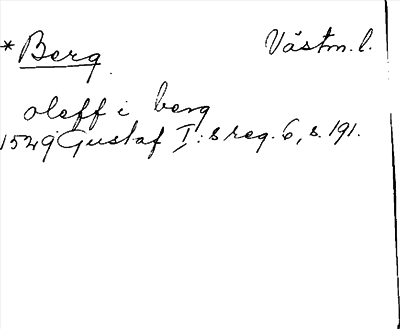 *Berg Västm. l.
oleff i berg
1529 Gustaf I:s reg. 6, s. 191.